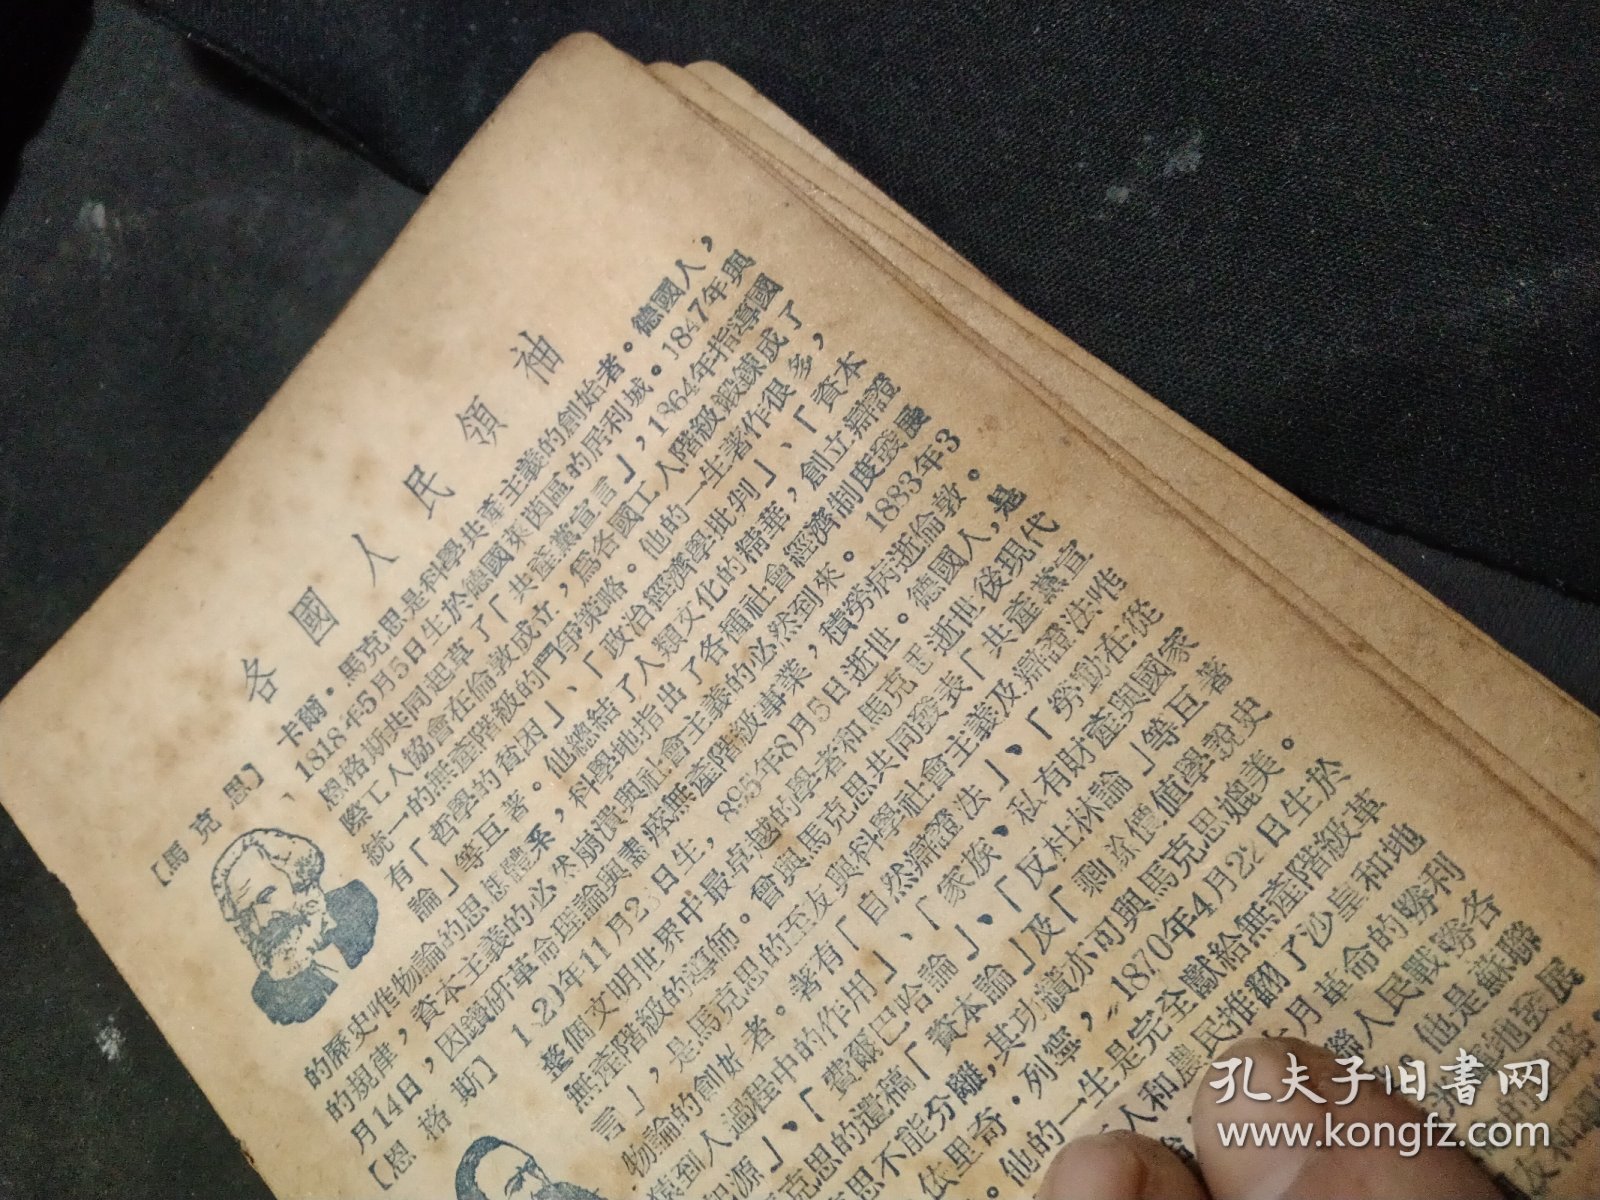 各國人民領袖
【馬克思】
卡爾·馬克思是科學共產主義的創始者。德國人，
1818年5月5日生於德國萊茵區的居利城。1847年與
恩格斯共同起草了「共產黨宣言」，1864年指導國
際工人協會在倫敦成立，為各國工人階級鍛鍊成了
統一的無產階級的鬥爭策略。他的一生著作很多，
有「哲學的貧困」、「政治經濟學批判」、「資本
論」等巨著。他總結了人類文化的精華，創立辯證
的歷史唯物論的思想體系，科學地指出了各種社會經濟制度發展
的規律，資本主義的必然崩潰與社會主義的必然到來。1883年3
月14日，因鑽研革命理論與盡瘁無產階級事業，積勞病逝倫敦。
【恩格斯】
日生，895年8月5日逝世。德國人，是
整個文明世界中最卓越的學者和馬克思逝世後現代
無產階級的導師。曾與馬克思共同發表「共產黨宣
言」，是馬克思的至友與科學社會主義及辯證法唯
物論的創始者。著有「自然辯證法」、「勞動在從
猿到人過程中的作用」、「家族、私有財產與國家
起源」、「費爾巴哈論」、「反杜林論」等巨著
克思的遺稿「資本論」及「剩餘價值學說史
思不能分離，其功績亦可與馬克思媲美。
依里奇·列寧，1870年4月22日生於
他的一生是完全獻給無產階級革
人和農民推翻了沙皇和地
月革命的勝利
聯人民戰勝各
他是蘇聯
地發展
的道路。
孔夫子旧书网
www.kongfz.com